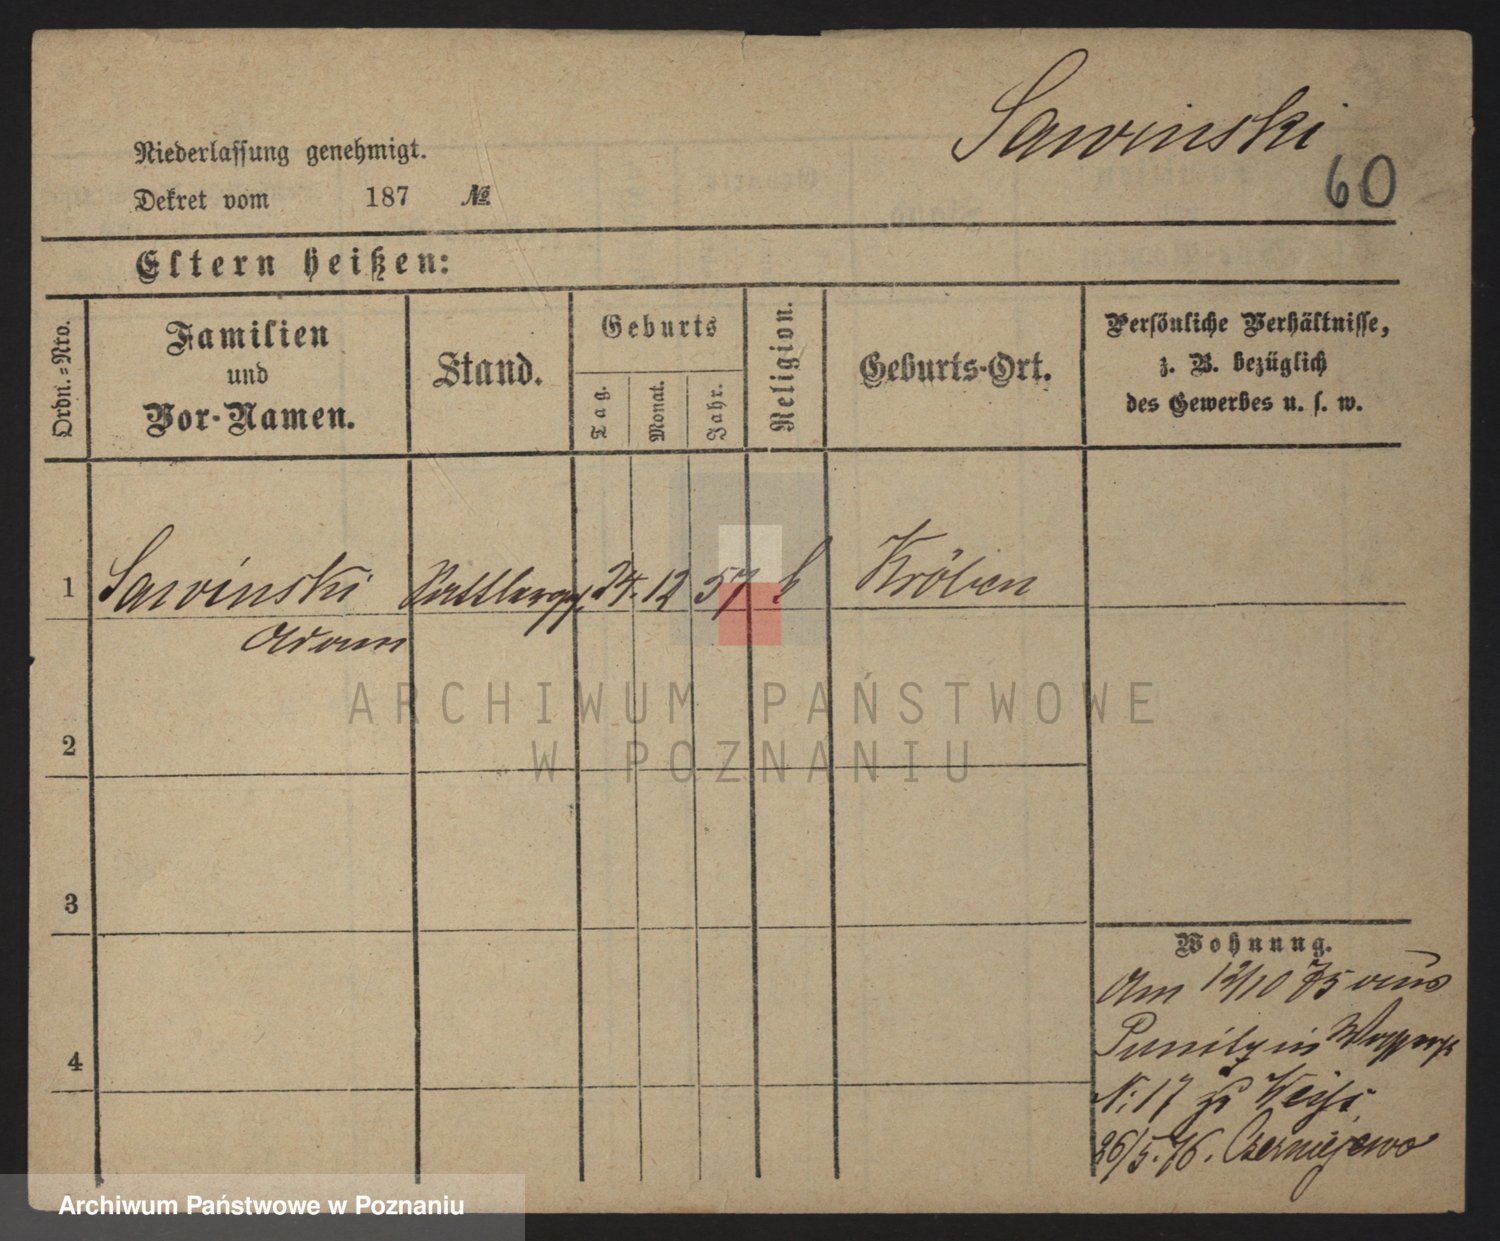 Sawinski
60
Niederlassung genehmigt.
Dekret vom 187 №
Eltern heißen:
Ordn.=Nro.
Familien
und
Vor-Namen.
Stand.
Geburts
Tag.
Monat.
Jahr.
Religion.
Geburts-Ort.
Persönliche Verhältnisse,
z. B. bezüglich
des Gewerbes u. s. w.
1 Sawinski 24. 12 57 Kröben
Adam
2
3
4
Wohnung.
Am 12/10 75 aus
Punitz in
N: 17 zu
26/5. 76. Czerniejewo
ARCHIWUM PAŃSTWOWE
W POZNANIU
Archiwum Państwowe w Poznaniu